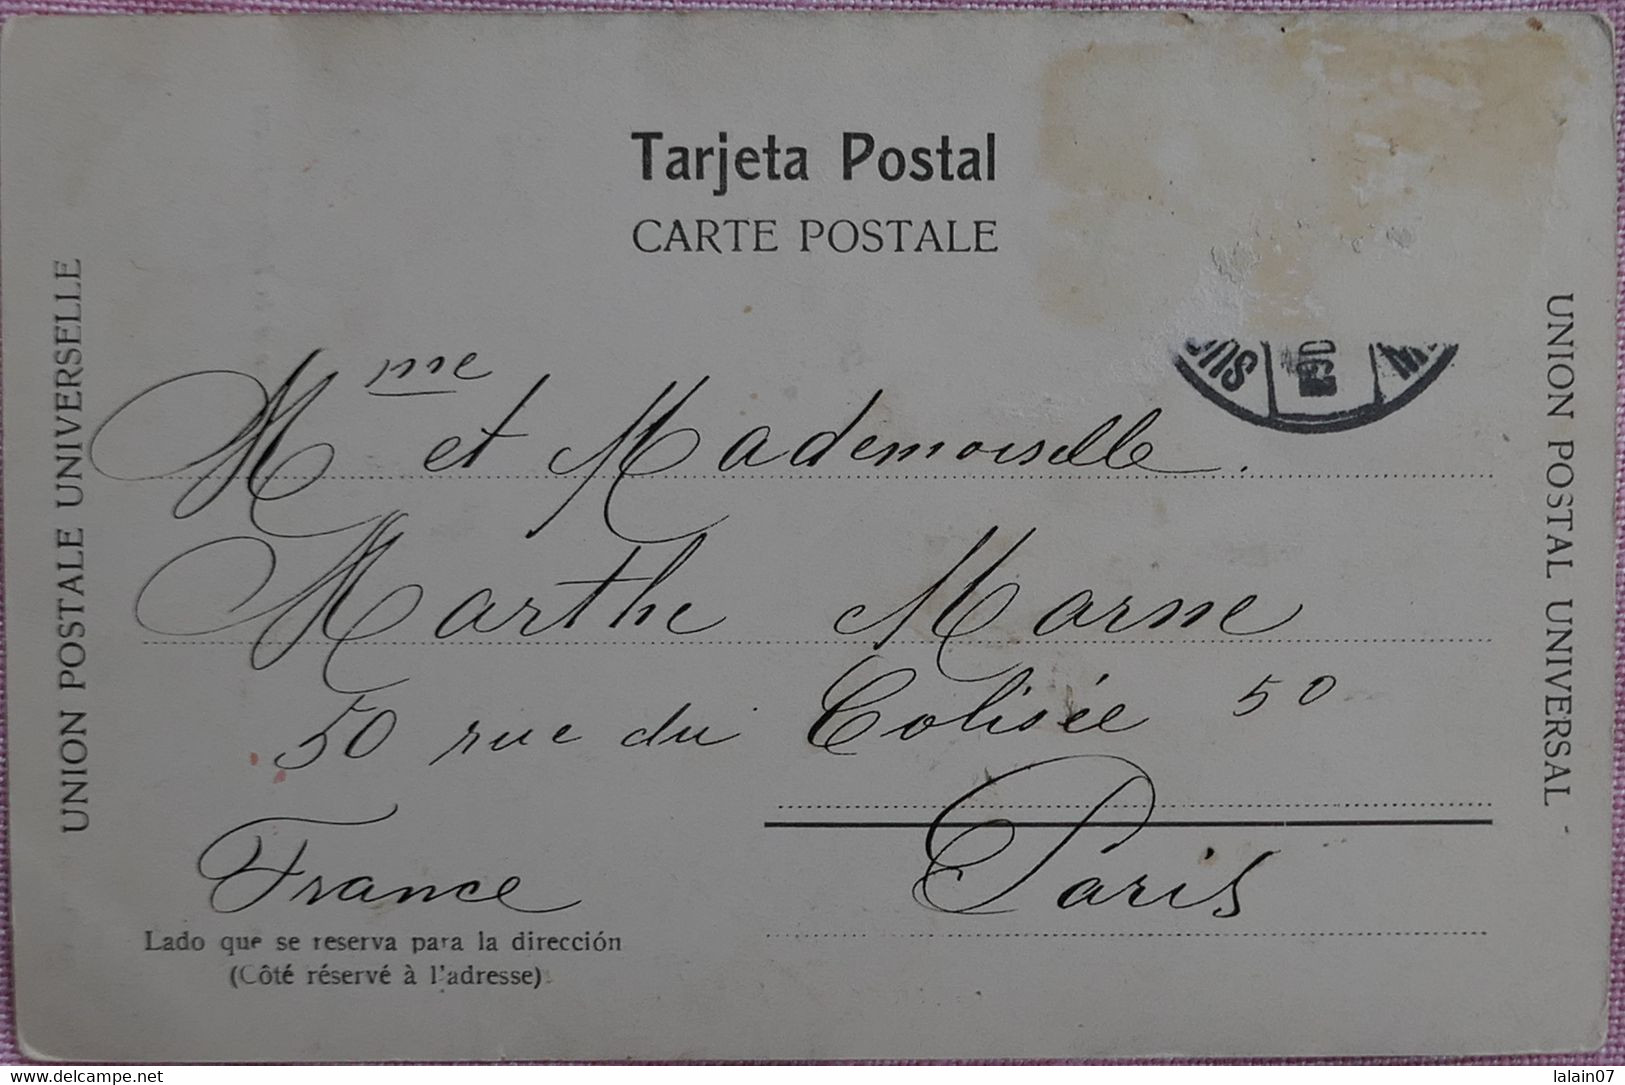 Tarjeta Postal
CARTE POSTALE
UNION POSTALE UNIVERSELLE
UNION POSTAL UNIVERSAL
Mme et Mademoiselle
Marthe Marne
50 rue du Colisée 50
Paris
France
Lado que se reserva para la dirección
(Côté réservé à l'adresse)
www.delcampe.net
lalain07